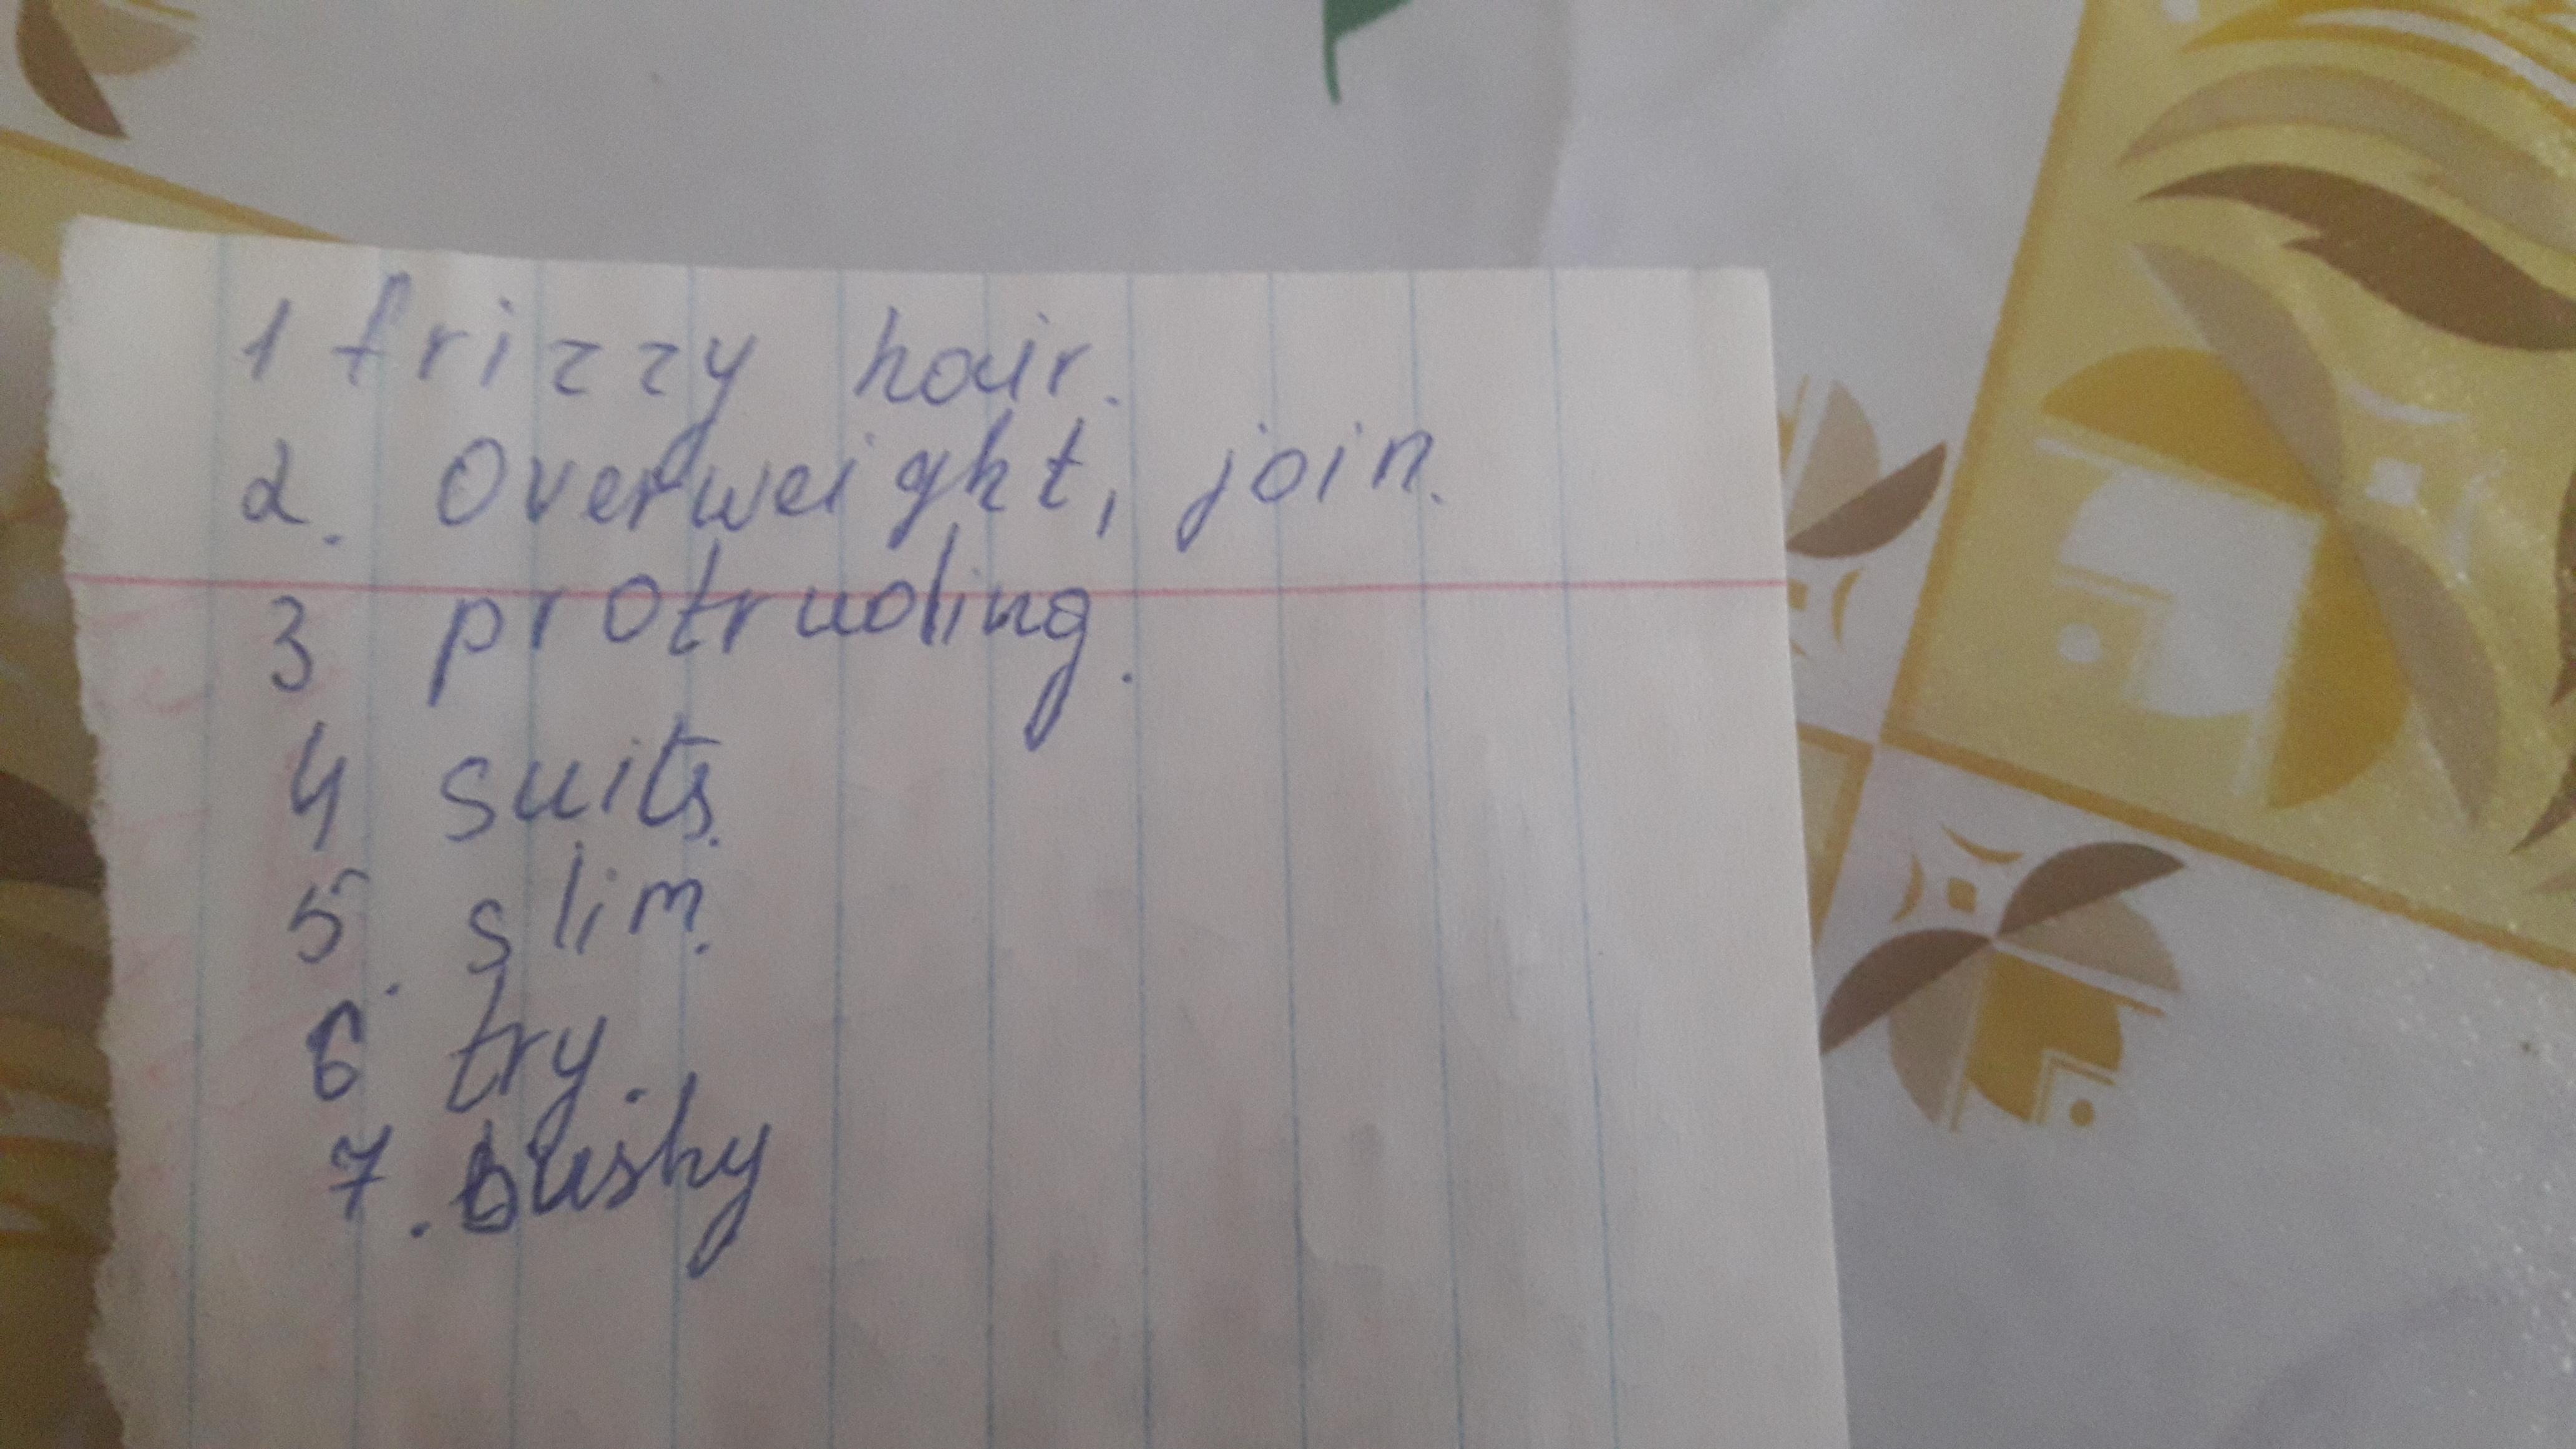 1 frizzy hair.
2. Overweight, join.
3 protruding.
4 suits.
5. slim.
6 try.
7. bushy